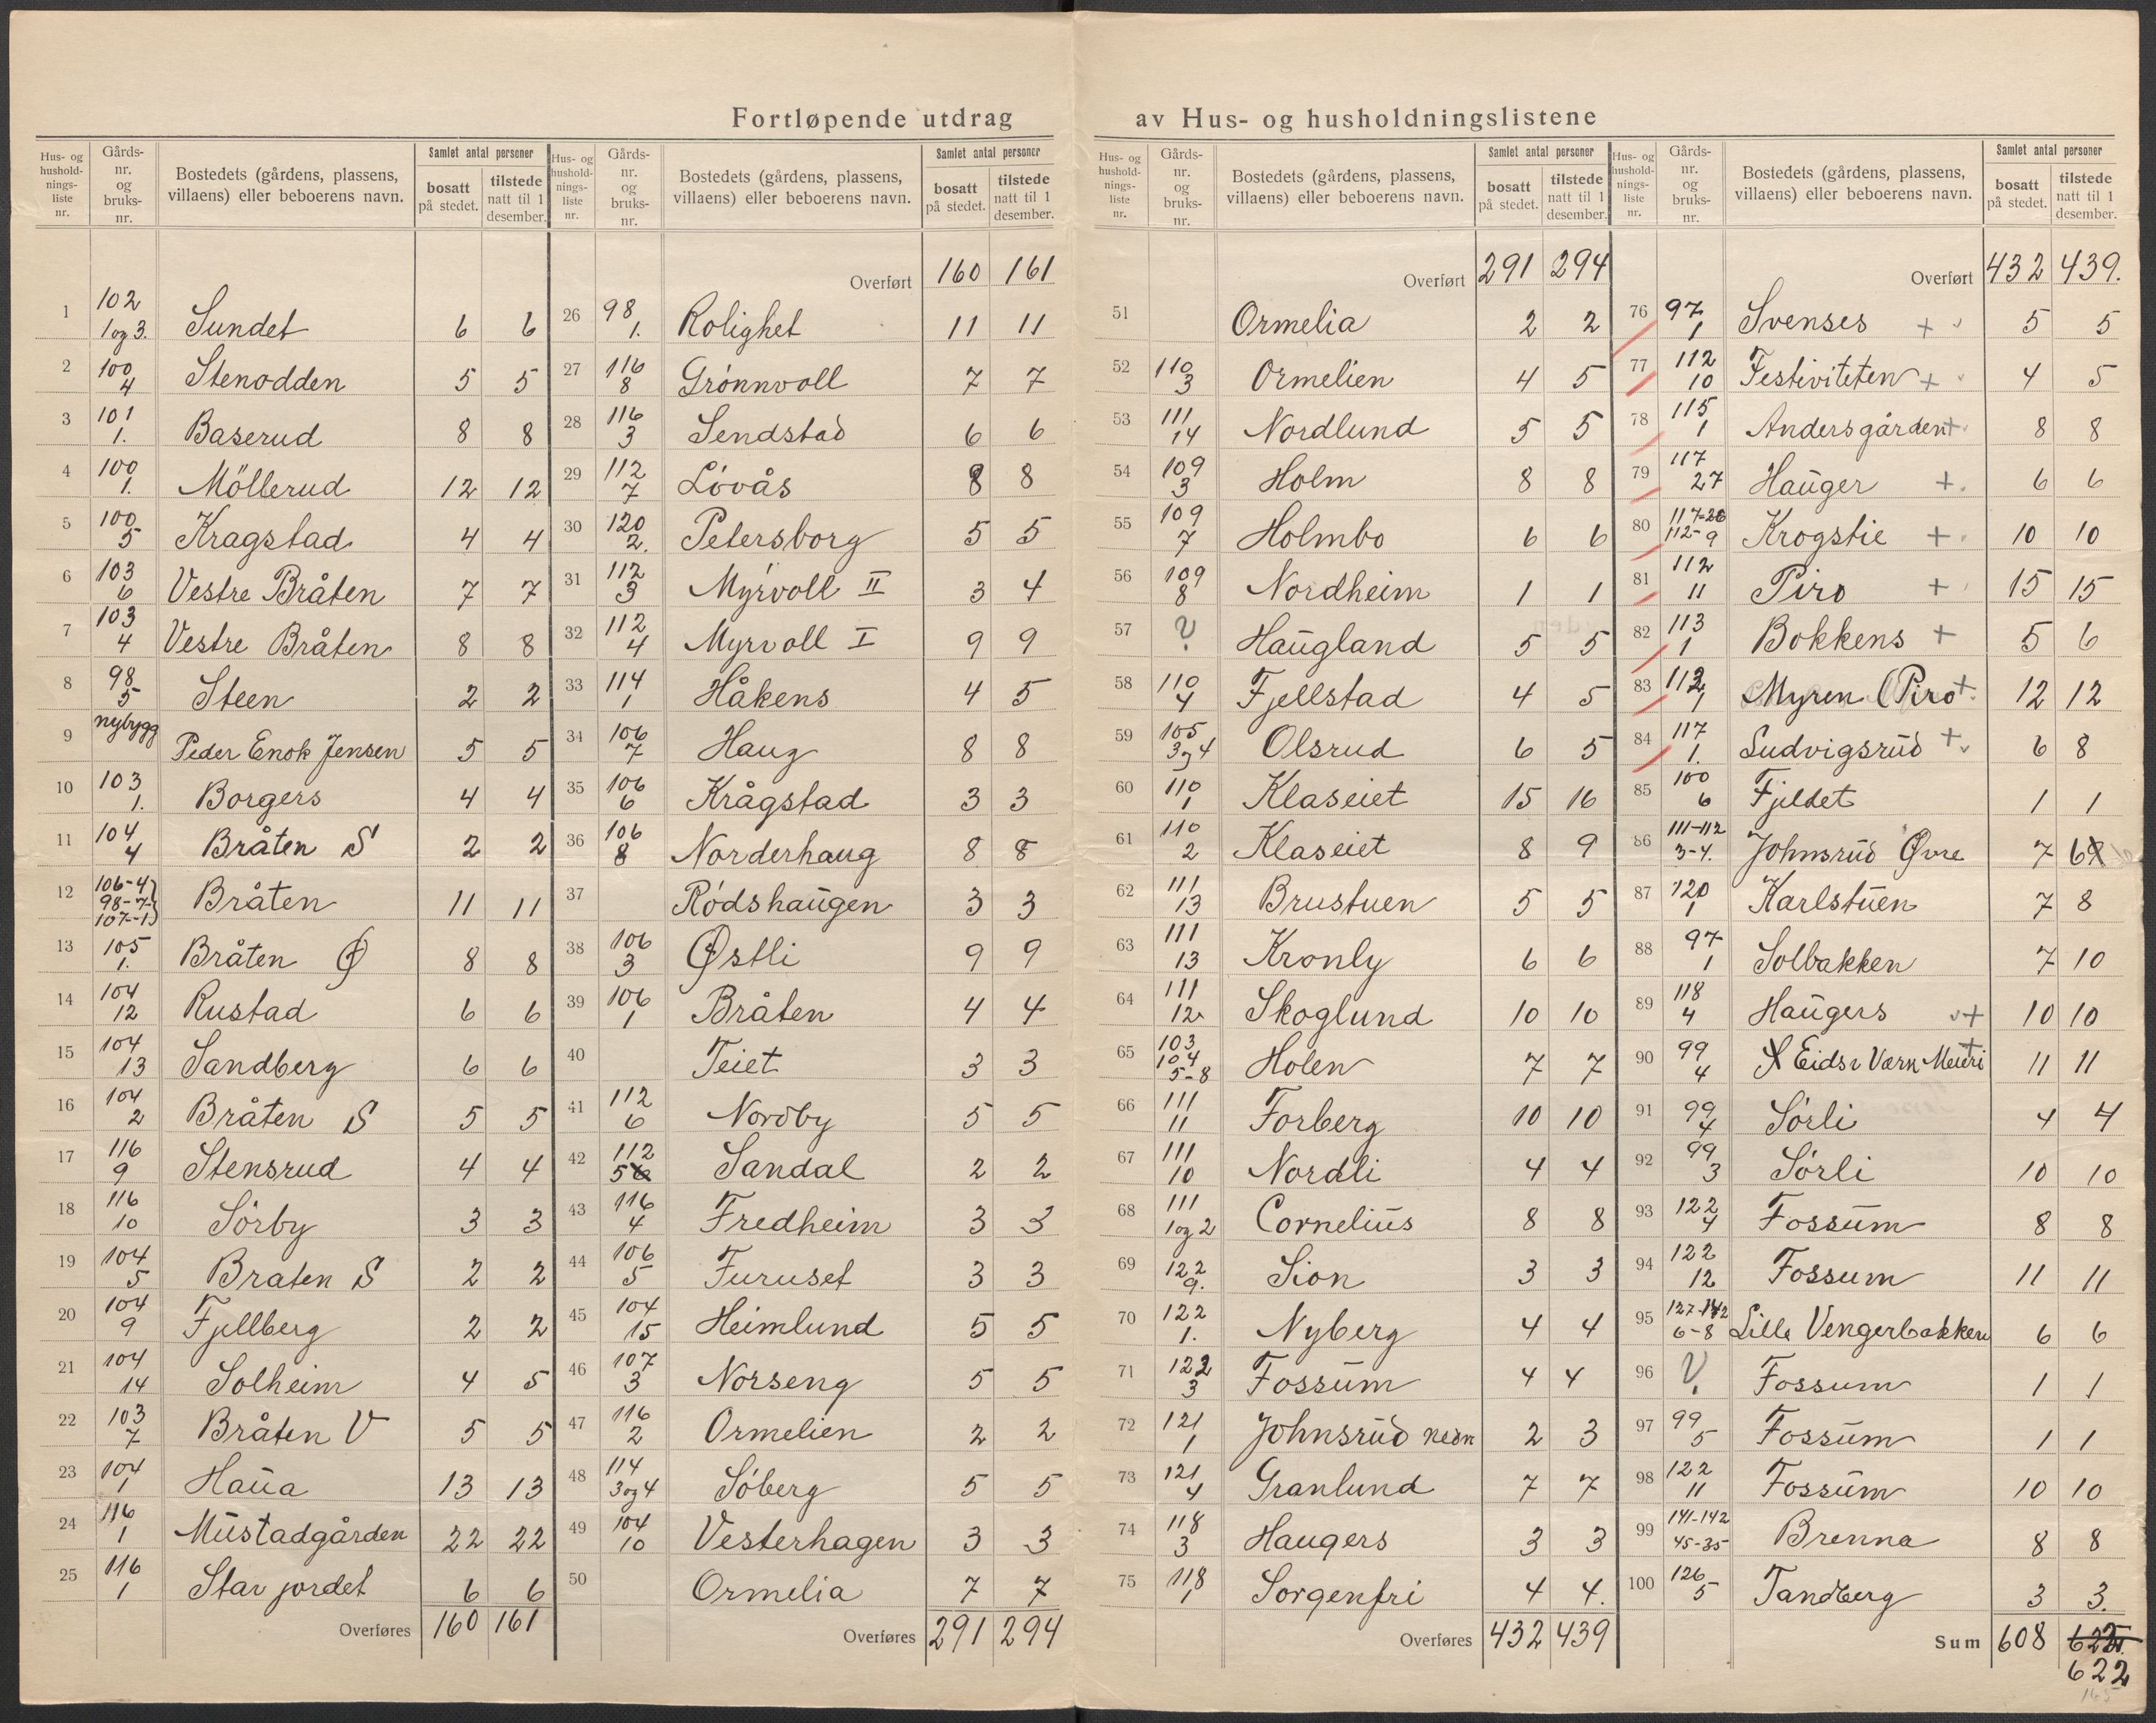 Fortløpende utdrag av Hus- og husholdningslistene
Hus- og hushold-nings-liste nr. | Gårds-nr. og bruks-nr. | Bostedets (gårdens, plassens, villaens) eller beboerens navn. | Samlet antal personer | bosatt på stedet. | tilstede natt til 1 desember.
1 | 102 1og3. | Sundet | 6 | 6
2 | 100 4 | Stenodden | 5 | 5
3 | 101 1. | Baserud | 8 | 8
4 | 100 1. | Möllerud | 12 | 12
5 | 100 5 | Kragstad | 4 | 4
6 | 103 6 | Vestre Bråten | 7 | 7
7 | 103 4 | Vestre Bråten | 8 | 8
8 | 98 5 | Steen | 2 | 2
9 | nybygg | Peder Enok Jensen | 5 | 5
10 | 103 1. | Borgers | 4 | 4
11 | 104 4 | Bråten S | 2 | 2
12 | 106-4 98-7 107-1 | Bråten | 11 | 11
13 | 105 1. | Bråten Ø | 8 | 8
14 | 104 12 | Rustad | 6 | 6
15 | 104 13 | Sandberg | 6 | 6
16 | 104 2 | Bråten S | 5 | 5
17 | 116 9 | Stensrud | 4 | 4
18 | 116 10 | Sörby | 3 | 3
19 | 104 5 | Braten S | 2 | 2
20 | 104 9 | Fjellberg | 2 | 2
21 | 104 14 | Solheim | 4 | 5
22 | 103 7 | Bråten V | 5 | 5
23 | 104 1 | Haua | 13 | 13
24 | 116 1 | Mustadgården | 22 | 22
25 | 116 1 | Stav jordet | 6 | 6
Overføres | 160 | 161
Hus- og hushold-nings-liste nr. | Gårds-nr. og bruks-nr. | Bostedets (gårdens, plassens, villaens) eller beboerens navn. | Samlet antal personer | bosatt på stedet. | tilstede natt til 1 desember.
Overført | 160 | 161
26 | 98 1. | Rolighet | 11 | 11
27 | 116 8 | Grönnvoll | 7 | 7
28 | 116 3 | Sendstad | 6 | 6
29 | 112 7 | Lövås | 8 | 8
30 | 120 2. | Petersborg | 5 | 5
31 | 112 3 | Myrvoll II | 3 | 4
32 | 112 4 | Myrvoll I | 9 | 9
33 | 114 1 | Håkens | 4 | 5
34 | 106 7 | Haug | 8 | 8
35 | 106 6 | Krågstad | 3 | 3
36 | 106 8 | Norderhaug | 8 | 8
37 | Rödshaugen | 3 | 3
38 | 106 3 | Østli | 9 | 9
39 | 106 1 | Bråten | 4 | 4
40 | Teiet | 3 | 3
41 | 112 6 | Nordby | 5 | 5
42 | 112 5 | Sandal | 2 | 2
43 | 116 4 | Fredheim | 3 | 3
44 | 106 5 | Furuset | 3 | 3
45 | 104 15 | Heimlund | 5 | 5
46 | 107 3 | Norseng | 5 | 5
47 | 116 2 | Ormelien | 2 | 2
48 | 114 3og4 | Söberg | 5 | 5
49 | 104 10 | Vesterhagen | 3 | 3
50 | Ormelia | 7 | 7
Overføres | 291 | 294
Hus- og hushold-nings-liste nr. | Gårds-nr. og bruks-nr. | Bostedets (gårdens, plassens, villaens) eller beboerens navn. | Samlet antal personer | bosatt på stedet. | tilstede natt til 1 desember.
Overført | 291 | 294
51 | Ormelia | 2 | 2
52 | 110 3 | Ormelien | 4 | 5
53 | 111 14 | Nordlund | 5 | 5
54 | 109 3 | Holm | 8 | 8
55 | 109 7 | Holmbo | 6 | 6
56 | 109 8 | Nordheim | 1 | 1
57 | ? | Haugland | 5 | 5
58 | 110 4 | Fjellstad | 4 | 5
59 | 105 3og4 | Olsrud | 6 | 5
60 | 110 1 | Klaseiet | 15 | 16
61 | 110 2 | Klaseiet | 8 | 9
62 | 111 13 | Brustuen | 5 | 5
63 | 111 13 | Kronly | 6 | 6
64 | 111 12 | Skoglund | 10 | 10
65 | 103 104 5-8 | Holen | 7 | 7
66 | 111 11 | Forberg | 10 | 10
67 | 111 10 | Nordli | 4 | 4
68 | 111 1og2 | Cornelius | 8 | 8
69 | 122 9. | Sion | 3 | 3
70 | 122 1. | Nyberg | 4 | 4
71 | 122 3 | Fossum | 4 | 4
72 | 121 1 | Johnsrud nedn | 2 | 3
73 | 121 4 | Granlund | 7 | 7
74 | 118 3 | Haugers | 3 | 3
75 | 118 1 | Sorgenfri | 4 | 4.
Overføres | 432 | 439
Hus- og hushold-nings-liste nr. | Gårds-nr. og bruks-nr. | Bostedets (gårdens, plassens, villaens) eller beboerens navn. | Samlet antal personer | bosatt på stedet. | tilstede natt til 1 desember.
Overført | 432 | 439.
76 | 97 1 | Svenses + | 5 | 5
77 | 112 10 | Festiviteten + | 4 | 5
78 | 115 1 | Andersgården + | 8 | 8
79 | 117 27 | Hauger +. | 6 | 6
80 | 117-26 112-9 | Krogstie + | 10 | 10
81 | 112 11 | Piro + | 15 | 15
82 | 113 1 | Bokkens + | 5 | 6
83 | 112 1 | Myren (Piro +. | 12 | 12
84 | 117 1. | Ludvigsrud + | 6 | 8
85 | 100 6 | Fjeldet | 1 | 1
86 | 111-112 3-4. | Johnsrud Øvre | 7 | 6
87 | 120 1 | Karlstuen | 7 | 8
88 | 97 1 | Solbakken | 7 | 10
89 | 118 4 | Haugers + | 10 | 10
90 | 99 4 | Eidsv Værk Meieri + | 11 | 11
91 | 99 4 | Sörli | 4 | 4
92 | 99 3 | Sörli | 10 | 10
93 | 122 4 | Fossum | 8 | 8
94 | 122 12 | Fossum | 11 | 11
95 | 127-142 6-8 | Lille Vengerbakken | 6 | 6
96 | ? | Fossum | 1 | 1
97 | 99 5 | Fossum | 1 | 1
98 | 122 11 | Fossum | 10 | 10
99 | 141-142 45-35 | Brenna | 8 | 8
100 | 126 5 | Tandberg | 3 | 3.
Sum | 608 | 622